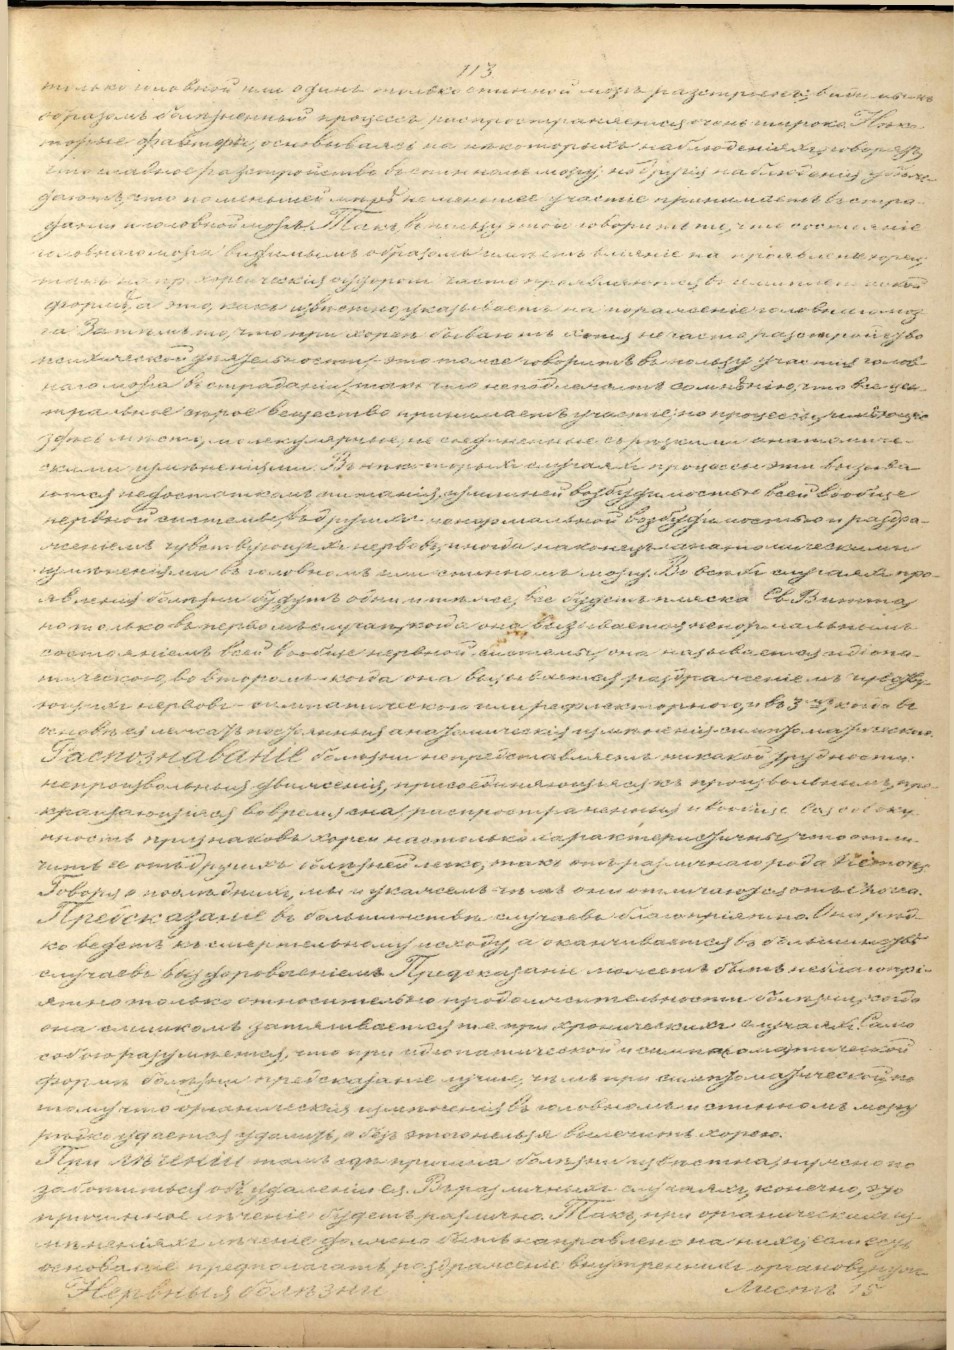 113
только головной или одинъ только спинной мозгъ разстроенъ; такимъ
образомъ болѣзненный процессъ распространяется очень широко. Нѣко-
торые факты, основываясь на нѣкоторыхъ наблюденіяхъ, говорятъ,
что главное разстройство въ спинномъ мозгу; но другія наблюденія убѣж-
даютъ, что по меньшей мѣрѣ не меньшее участіе принимаетъ въ стра-
даніи и головной мозгъ. Такъ въ пользу этой говоритъ то, что состояніе
головнаго мозга видимымъ образомъ имѣетъ вліяніе на проявленіе хореи,
такъ напр. хорейческія судороги часто проявляются въ гемиплегической
формѣ, а это, какъ извѣстно, указываетъ на пораженіе головнаго моз-
га. Затѣмъ то, что при хореѣ бываютъ хотя не часто разстройства
психической дѣятельности, это тоже говоритъ въ пользу участія голов-
наго мозга въ страданіи; такъ что не подлежитъ сомнѣнію, что все цен-
тральное сѣрое вещество принимаетъ участіе; но процессы, имѣющіе
здѣсь мѣсто, молекулярные, не соединенные съ рѣзкими анатомиче-
скими измѣненіями. Въ нѣкоторыхъ случаяхъ процессы эти вызыва-
ются недостаткомъ питанія, излишней возбудимостью всей вообще
нервной системы, въ другихъ ненормальной возбудимостью и раздра-
женіемъ чувствующихъ нервовъ, иногда наконецъ анатомическими
измѣненіями въ головномъ или спинномъ мозгу. Во всѣхъ случаяхъ про-
явленія болѣзни будутъ одни и тѣже, все будетъ пляска Св. Витта,
но только въ первомъ случаѣ, когда она вызывается ненормальнымъ
состояніемъ всей вообще нервной системы, она называется идіопа-
тическою, во второмъ - когда она вызывается раздраженіемъ чувству-
ющихъ нервовъ - симпатическою или рефлекторною, и въ 3-хъ, когда въ
основѣ ея лежатъ постоянныя анатомическія измѣненія - симптоматическою.
Распознаваніе болѣзни не представляетъ никакой трудности:
непроизвольныя движенія, присоединяющіяся къ произвольнымъ, пре-
кращающіяся во время сна, распространенныя и вообще вся совоку-
пность признаковъ хореи настолько характеристичны, что отли-
чить ее отъ другихъ болѣзней легко, такъ отъ различнаго рода tremores.
Говоря о послѣднихъ, мы и укажемъ чѣмъ они отличаются отъ chorea.
Предсказаніе въ большинствѣ случаевъ благопріятно. Она рѣд-
ко ведетъ къ смертельному исходу, а оканчивается въ большинствѣ
случаевъ выздоровленіемъ. Предсказаніе можетъ быть неблагопрі-
ятно только относительно продолжительности болѣзни, когда
она слишкомъ затягивается т.е. при хроническихъ случаяхъ. Само
собою разумѣется, что при идіопатической и симпатической
формѣ болѣзни предсказаніе лучше, чѣмъ при симптоматической, по
тому что органическія измѣненія въ головномъ и спинномъ мозгу
рѣдко удается удалить, а безъ этого нельзя вылечить хорею.
При лѣченіи тамъ гдѣ причина болѣзни извѣстна, нужно по
заботиться объ удаленіи ея. Въ различныхъ случаяхъ, конечно, это
причинное лѣченіе будетъ различно. Такъ, при органическихъ из-
мѣненіяхъ лѣченіе должно быть направлено на нихъ; если есть
основаніе предполагать раздраженіе внутреннихъ органовъ, нуж-
Нервныя болѣзни Листъ 15